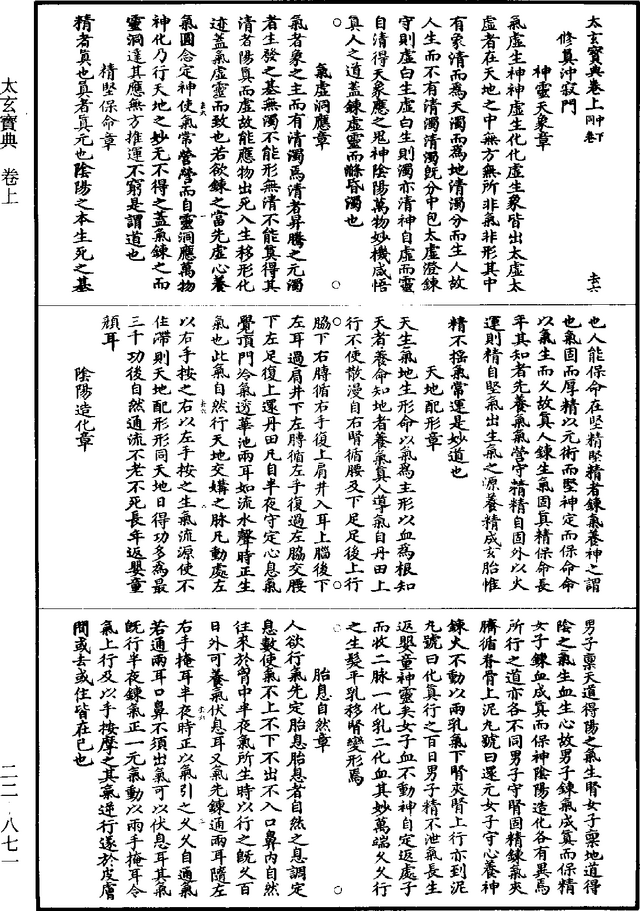 太玄寶典卷上同卷中下　　　　　去六
修真沖寂門
神靈天象章
氣虛生神神虛生化化虛生象皆出太虛太
虛者在天地之中無方無所非氣非形其中
有象清而為天濁而為地清濁分而生人故
人生而不有清濁清濁既分中包太虛澄鍊
守則虛白生虛白生則濁亦清神自虛而靈
自清得天象應之鬼神陰陽萬物妙機咸悟
真人之道蓋鍊虛靈而滌昏濁也
氣虛洞應章
氣者象之主而有清濁焉清者昇騰之元濁
者生發之基無濁不能形無清不能真得其
清者陽真而虛故能應物出死入生移形化
迹蓋氣虛靈而致也若欲鍊之富先虛心養
氣圓念定神使氣常營營而自靈洞應萬物
神化乃行天地之妙無不得之蓋氣鍊之而
靈洞達其應無方推運不窮是謂道也
精堅保命章
精者真也真者真元也陰陽之本生死之基
也人能保命在堅精堅精者鍊氣養神之謂
也氣固而厚精以元術而堅神定而保命命
以氣生而久故真人鍊生氣固真精保命長
年其知者先養氣氣營守精精自固外以火
運則精自堅氣出生氣之源養精成玄胎惟
精不搖氣常運是妙道也
天地配形章
天生氣地生形命以氣為主形以血為根知
天者養命知地者養氣真人導氣自丹田上
行不使散漫自右腎循腰及下足足後上行
脇下右膊循右手復上肩井入耳上腦後下
左耳過肩井下左膊循左手復過左脇交腰
下左足復上還丹田凡自半夜守定心息氣
覺頂門冷氣透華池兩耳如流水聲時正生
氣也此氣自然行天地交媾之脉凡動處左
以右手按之右以左手按之生氣流源使不
住滯則天地配形形同天地日得功多為最
三千功後自然通流不老不死長年返嬰童
顏耳
陰陽造化章
男子稟天道得陽之氣生腎女子稟地道得
陰之氣生血生心故男子鍊氣成真而保精
女子鍊血成真而保神陰陽造化各有異焉
所行之道亦各不同男子守腎固精鍊氣夾
臍循脊骨上泥九號曰還元女子守心養神
鍊火不動以兩乳氣下腎夾腎上行亦到泥
九號曰化真行之百日男子精不泄氣長生
返嬰童神靈矣女子血不動神自定返處子
而收二脉一化乳二化血其妙萬端久久行
之生髮平乳移腎變形焉
胎息自然章
人欲行氣先定胎息胎息者自然之息調定
息數使氣不上不下不出不入口鼻內自然
往來於胷中半夜氣所生時以行之既久百
日外可養氣伏息耳又氣先鍊通兩耳隨左
右手掩耳半夜時正以氣引之久久自通氣
若通兩耳口鼻不須出氣可以伏息耳其氣
既行半夜鍊氣正一元氣動以兩手掩耳令
氣上行及以手按摩之其氣逆行遂於皮膚
間或去或住皆在已也
太玄寶典　卷上
二二－八七一